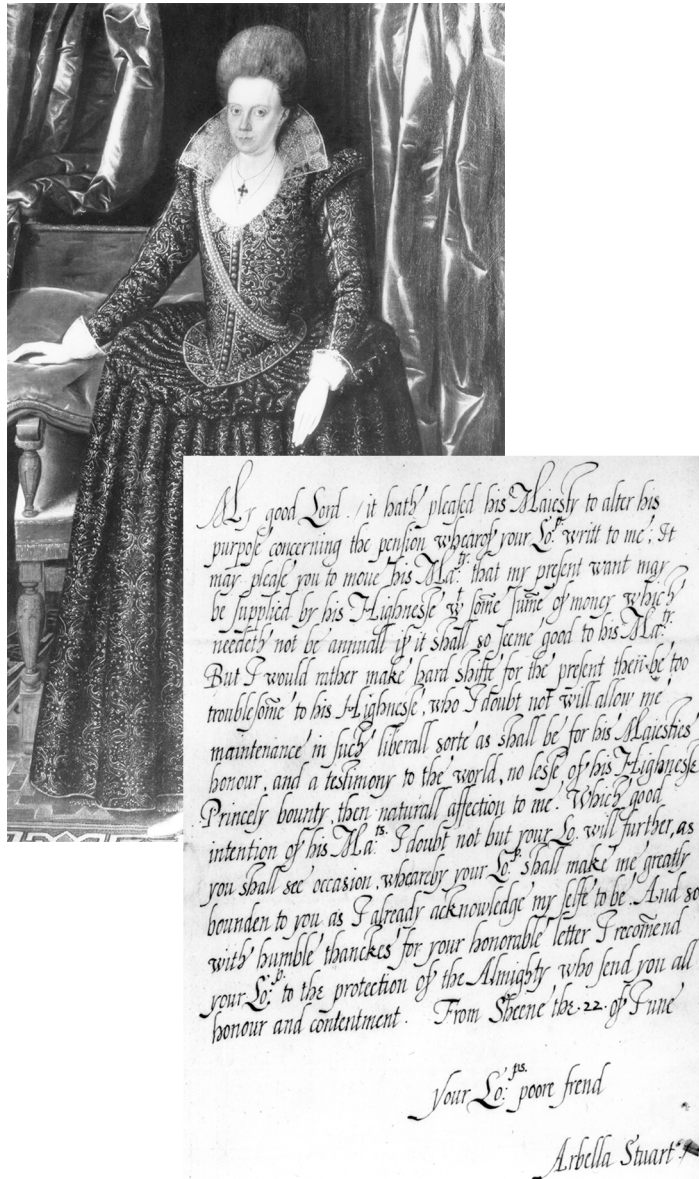 My good Lord. it hath pleased his Maiesty to alter his
purpose concerning the pension whearof your Lo:p. writt to me; It
may please you to moue his Ma:ty: that my present want may
be supplied by his Highnesse wt some summe of money which
needeth not be annuall if it shall so seeme good to his Ma:ty.
But I would rather make hard shifte for the present then be too
troublesome to his Highnesse, who I doubt not will allow me
maintenance in such liberall sorte as shall be for his Maiesties
honour, and a testimony to the world, no lesse of his Highnesse
Princely bounty, then naturall affection to me. Which good
intention of his Ma:ts. I doubt not but your Lo. will further, as
you shall see occasion, wheareby your Lo:p. shall make me greatly
bounden to you as I already acknowledge my selfe to be. And so
with humble thanckes for your honorable letter I recomend
your Lo:p. to the protection of the Almighty who send you all
honour and contentment. From Sheene the .22. of June
your Lo:ps. poore frend
Arbella Stuart.